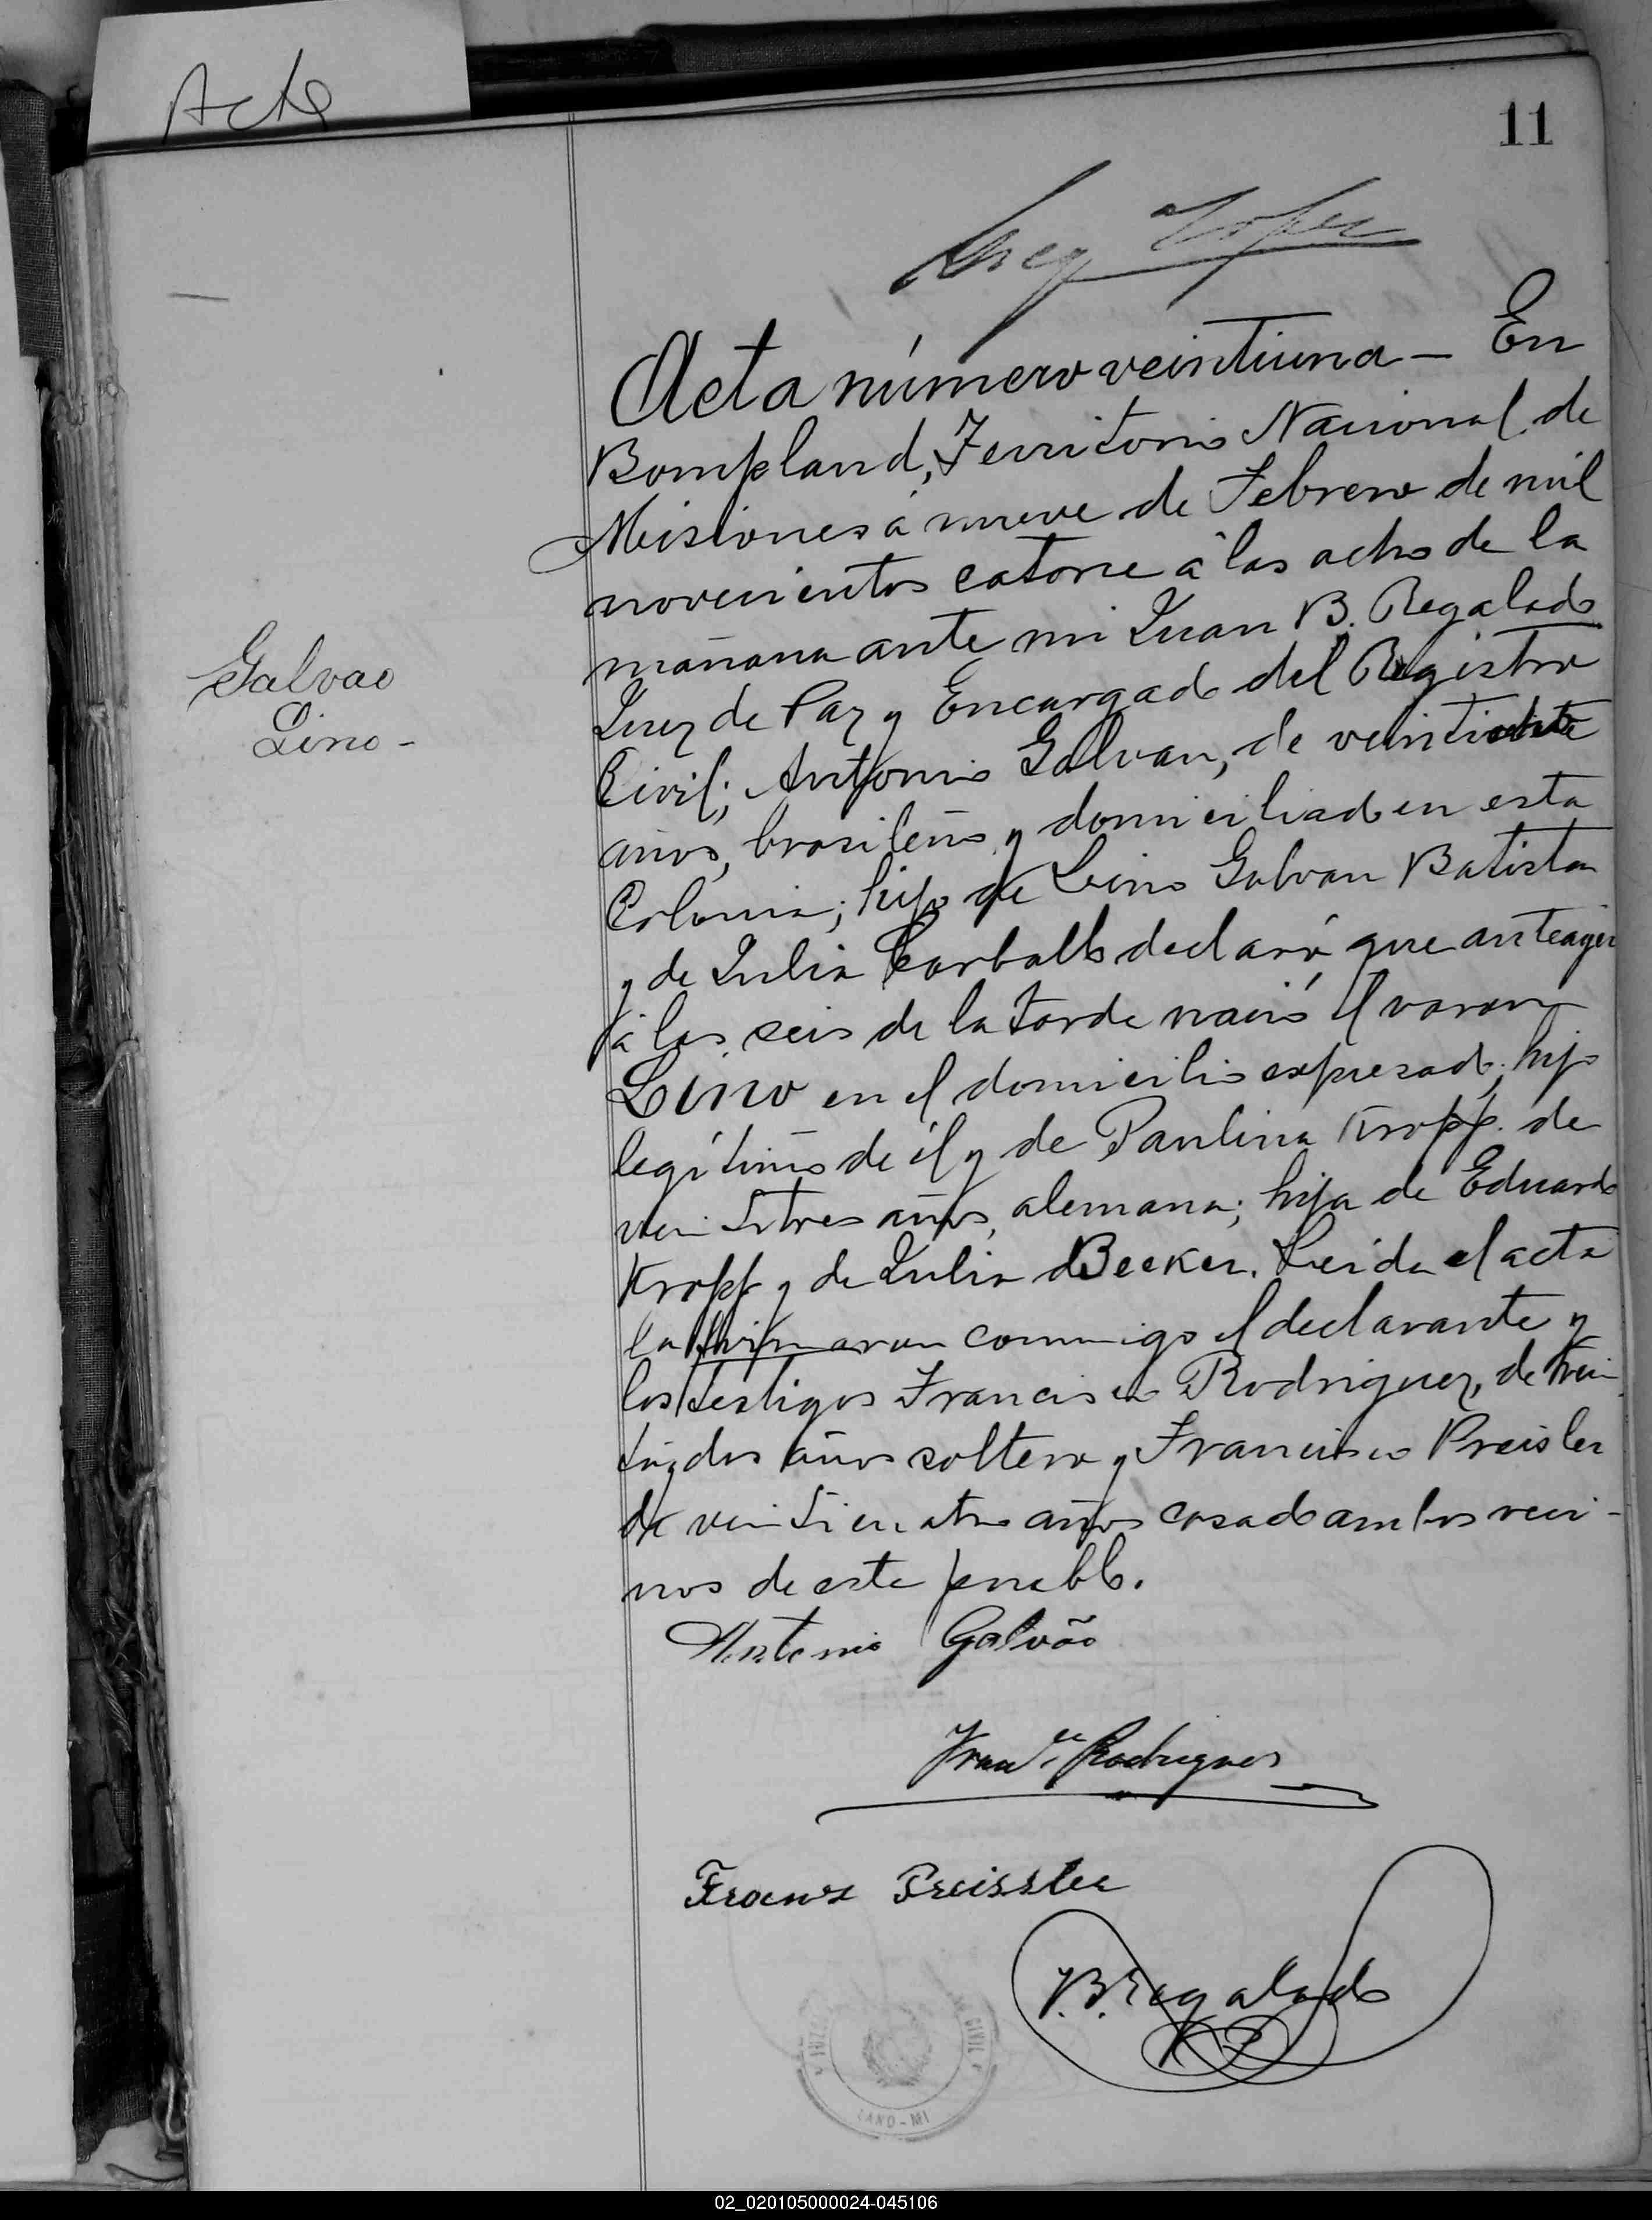 Acta
11
Greg Lopez
Acta número veintiuna — En
Bompland, Territorio Nacional de
Misiones á nueve de Febrero de mil
novecientos catorce á las ocho de la
mañana ante mi Juan B. Regalado
Juez de Paz y Encargado del Registro
Civil; Antonio Galvan, de
años, brasileño y domiciliado en esta
Colonia; hijo de Lino Galvan Batista
y de Julia Carballo declaró que anteayer
á las seis de la tarde nació el varon
Lino en el domicilio expresado; hijo
legítimo de él y de Paulina Kropp. de
veintitres años, alemana; hija de Eduardo
Kropp y de Julia Becker. Leida el acta
la firmaron conmigo el declarante y
los testigos Francisco Rodriguez, de trein
ta y dos años soltero y Francisco Preisler
de veinticuatro años casado ambos veci-
nos de este pueblo.
Galvao
Lino-
Antonio Galvão
Franco Rodriguez
Franz Preissler
J.B. Regalado
JUZG
CIVIL
LAND - MI
02_020105000024-045106